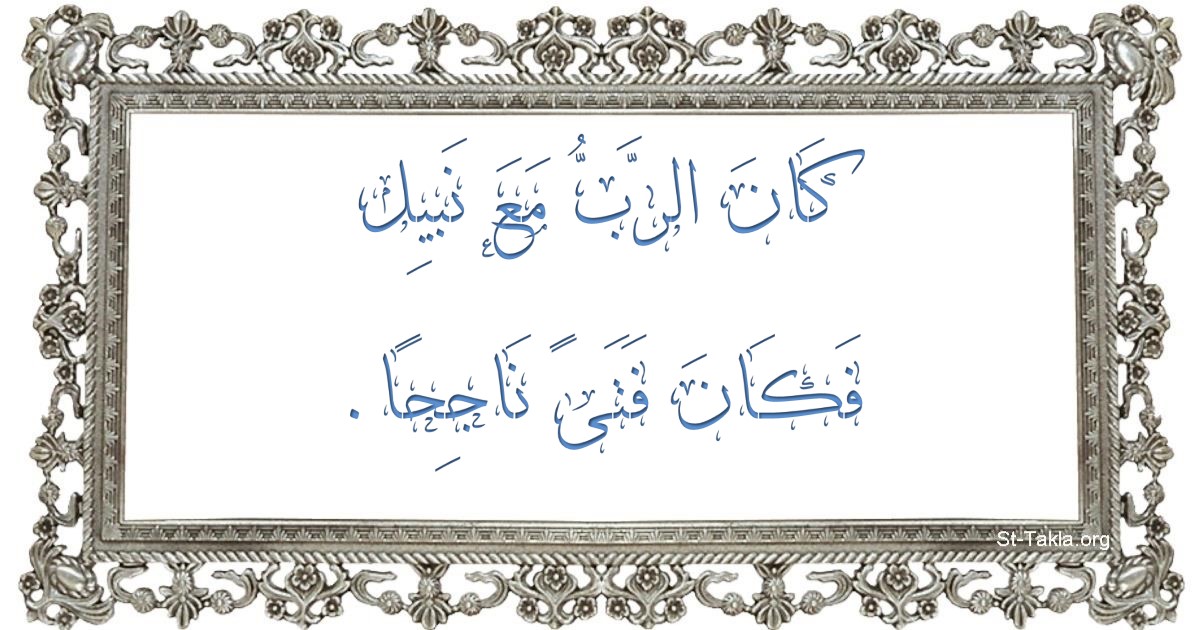 كَانَ الرَّبُّ مَعَ نَبِيِل
فَكَانَ فَتَىً نَاجِحًا .
St-Takla.org